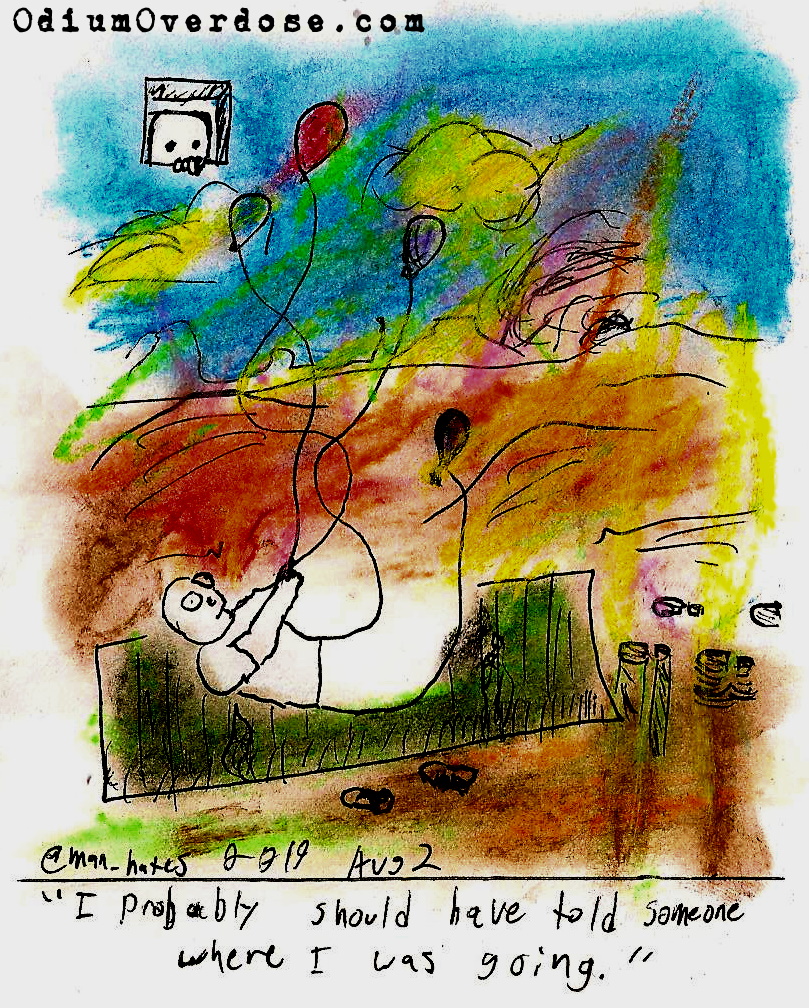 OdiumOverdose.com
@man_hates 2-219 Aug 2
"I probably should have told someone
where I was going."